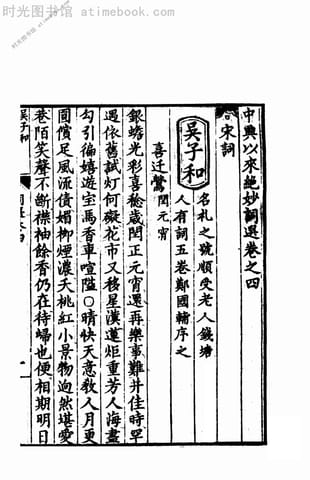 时光图书馆 atimebook.com
中興以來絶妙詞選卷之四
宋詞
吳子和
名礼之號順受老人錢塘
人有詞五卷鄭國輔序之
喜迁鶯 閏元宵
銀蟾光彩喜稔歲閏正元宵還再樂事難并佳時罕
遇依舊試灯何礙花市又移星漢蓮炬重芳人海盡
勾引徧嬉遊宝馬香車喧隘○晴快天意教人月更
圓償足風流債媚柳煙濃夭桃紅小景物逈然堪愛
巷陌笑聲不斷襟袖餘香仍在待歸也便相期明日
吳子和